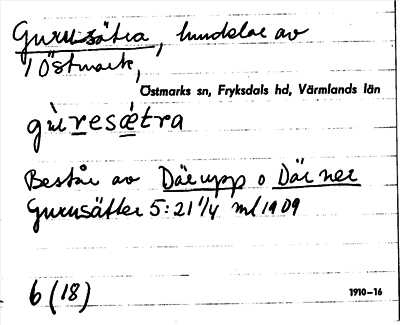 Gurusätra, hundelar av
i Östmark,
Östmarks sn, Fryksdals hd, Värmlands län
gùresǽtra
Består av Där upp o Där ner
Gurusätter 5:21 1/4 ml 1909
6 (18)
1910-16